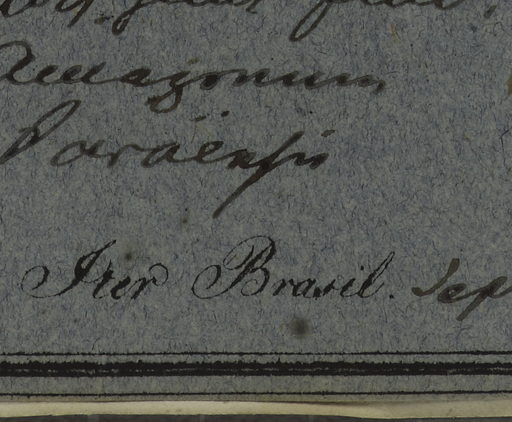 Amazonum
Paraensis
Iter Brasil. Sep